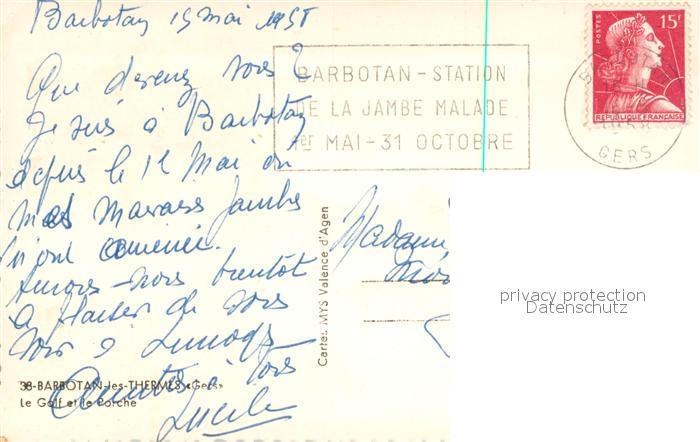 Barbotan 15 mai 1958
Que devenez vous ?
Je suis à Barbotan
depuis le 12 Mai où
mes mauvaises jambes
m'ont amenée.
Aurons-nous bientôt
le plaisir de vous
voir à Limoges
Amitiés à tous
Lucile
38-BARBOTAN-les-THERMES «Gers»
Le Golf et le Porche
Cartes MYS Valence d'Agen
BARBOTAN - STATION
DE LA JAMBE MALADE
1er MAI - 31 OCTOBRE
POSTES
15F
REPUBLIQUE FRANÇAISE
GERS
Madame
privacy protection
Datenschutz